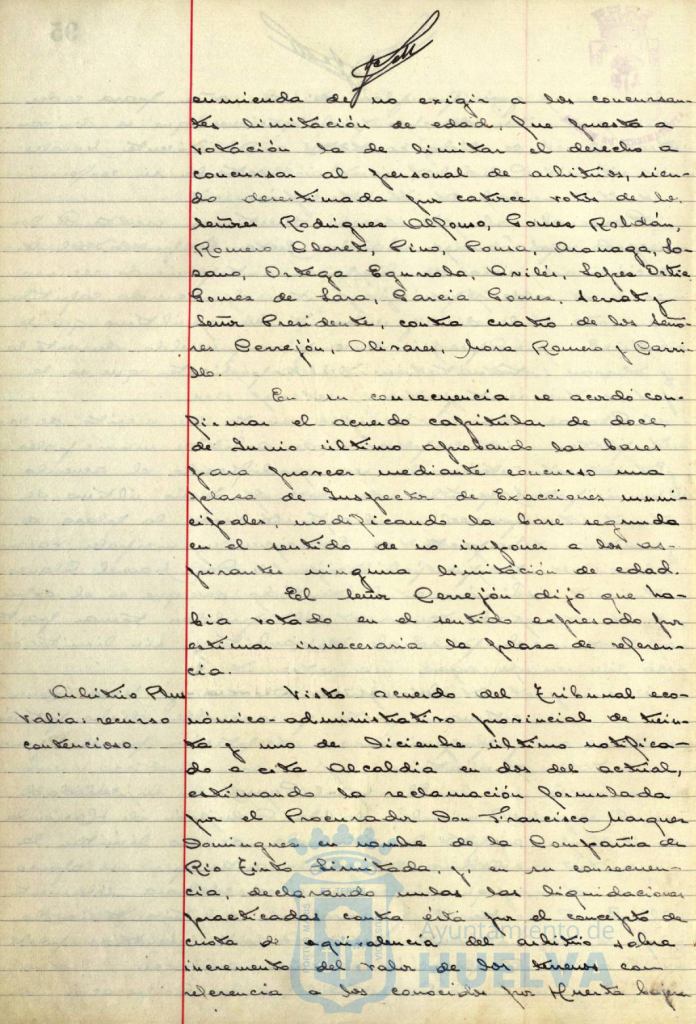 enmienda de no exigir a los concursan-
tes limitación de edad, que puesta a
votación la de limitar el derecho a
concursar al personal de arbitrios, sien-
do desestimada por catorce votos de los
Señores Rodriguez Alfonso, Gomez Roldán,
Romero Claret, Pino, Ponsa, Aranaga, Lo-
zano, Ortega Egurrola, Avilés, Lopez Ortiz
Gomez de Lara, Garcia Gomez, Serrat y
Señor Presidente, contra cuatro de los Seño-
res Cerrejón, Olivares, Mora Romero y Carri-
llo.
En su consecuencia se acordó con-
firmar el acuerdo capitular de doce
de Junio último aprobando las bases
para proveer mediante concurso una
plaza de Inspector de Exacciones muni-
cipales, modificando la base segunda
en el sentido de no imponer a los as-
pirantes ninguna limitación de edad.
El Señor Cerrejón dijo que ha-
bia votado en el sentido expresado por
estimar innecesaria la plaza de referen-
cia.
Arbitrio Plus
valia: recurso
contencioso.
Visto acuerdo del Tribunal eco-
nómico-administrativo provincial de trein-
ta y uno de Diciembre último notifica-
do a esta Alcaldía en dos del actual,
estimando la reclamación formulada
por el Procurador Don Francisco Marquez
Dominguez en nombre de la Compañia de
Rio Tinto Limitada, y, en su consecuen-
cia, declarando nulas las liquidaciones
practicadas contra ésta por el concepto de
cuota de equivalencia del arbitrio sobre
incremento del valor de los terrenos con
referencia a los conocidos por Huerta
Ayuntamiento de
HUELVA